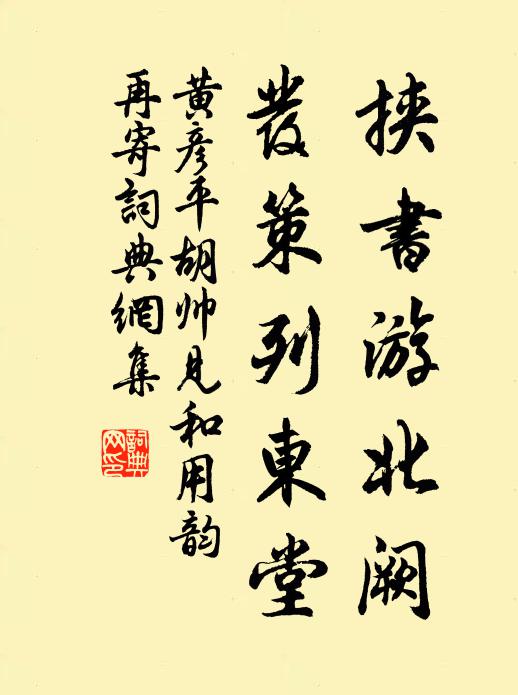 挾書游北阙
發策列東堂
黄彦平胡帅見和用韵
再寄詞典網集
詞典网印